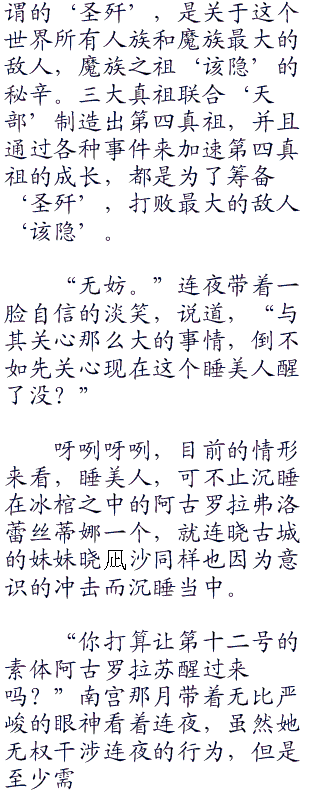 谓的‘圣歼’，是关于这个
世界所有人族和魔族最大的
敌人，魔族之祖‘该隐’的
秘辛。三大真祖联合‘天
部’制造出第四真祖，并且
通过各种事件来加速第四真
祖的成长，都是为了筹备
‘圣歼’，打败最大的敌人
‘该隐’。
“无妨。”连夜带着一
脸自信的淡笑，说道，“与
其关心那么大的事情，倒不
如先关心现在这个睡美人醒
了没？”
呀咧呀咧，目前的情形
来看，睡美人，可不止沉睡
在冰棺之中的阿古罗拉弗洛
蕾丝蒂娜一个，就连晓古城
的妹妹晓凪沙同样也因为意
识的冲击而沉睡当中。
“你打算让第十二号的
素体阿古罗拉苏醒过来
吗？”南宫那月带着无比严
峻的眼神看着连夜，虽然她
无权干涉连夜的行为，但是
至少需